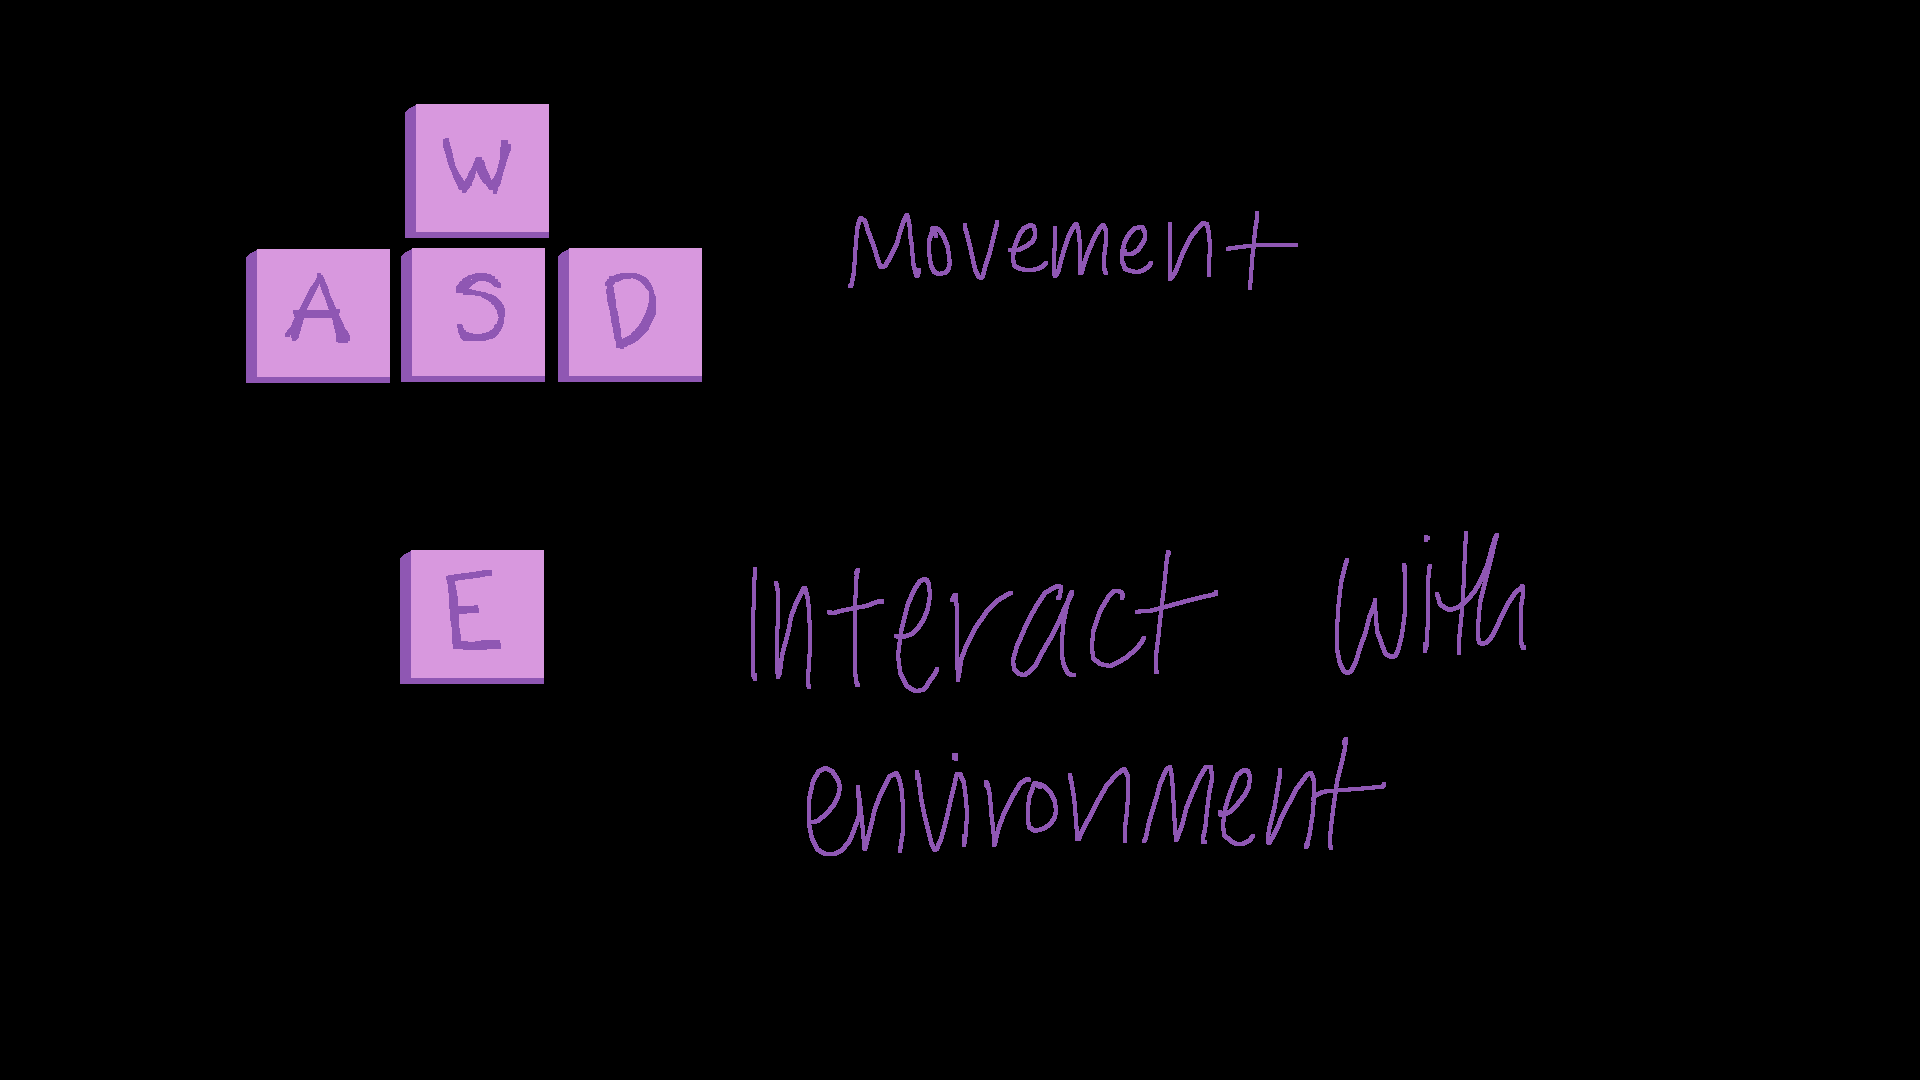 W
A S D
Movement
E
Interact with
environment